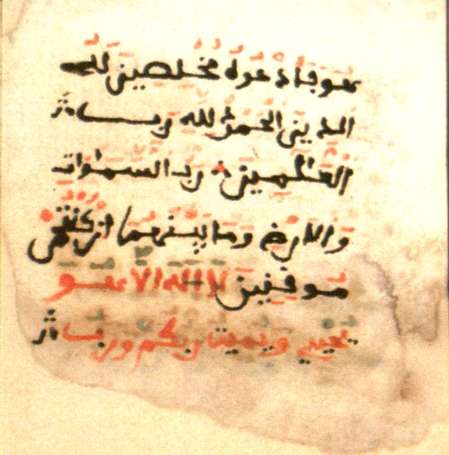 هو فادعوه مخلصين له
الدين الحمد لله رب
العلمين رب السموات
والارض وما بينهما ان كنتم
موقنين لا اله الا هو
يحيي ويميت ربكم ورب